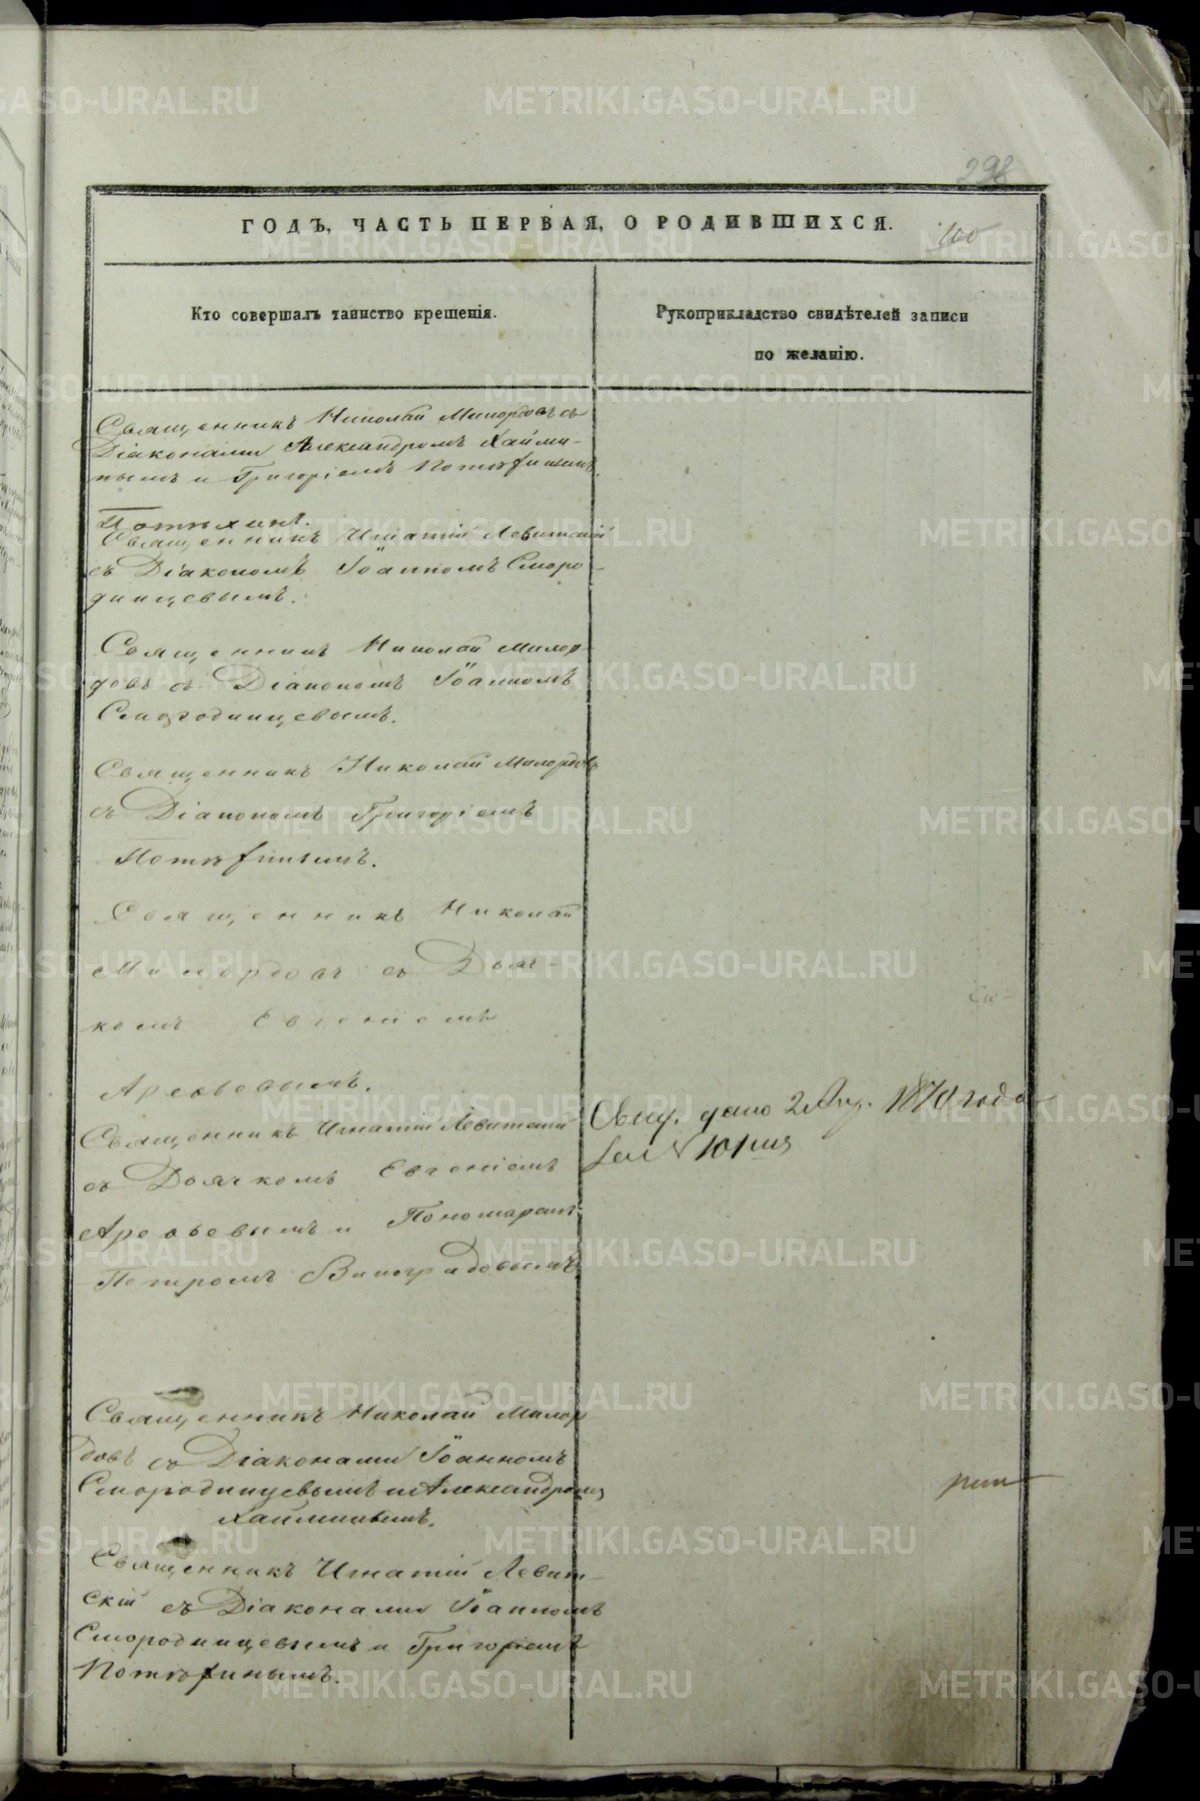 298
ГОДЪ, ЧАСТЬ ПЕРВАЯ, О РОДИВШИХСЯ.
100
Кто совершалъ таинство крещенія.
Рукоприкладство свидѣтелей записи
по желанію.
Священникъ Николай Милордовъ съ
Діаконами Александромъ Хайми-
нымъ и Григоріемъ Потѣхинымъ.
Священникъ Игнатій Левитскій
съ Діакономъ Іоанномъ Сморо-
динцевымъ.
Священникъ Николай Милор-
довъ съ Діакономъ Іоанномъ
Смородинцевымъ.
Священникъ Николай Милордовъ
съ Діакономъ Григоріемъ
Потѣхинымъ.
Священникъ Николай
Милордовъ съ Дьяч-
комъ Евгеніемъ
Арефьевымъ.
Священникъ Игнатій Левитскій
съ Дьячкомъ Евгеніемъ
Арефьевымъ и Пономаремъ
Петромъ Виноградовымъ
дано 1870 года
Священникъ Николай Милор-
довъ съ Діаконами Іоанномъ
Смородинцевымъ и Александромъ
Хайминымъ.
Священникъ Игнатій Левит-
скій съ Діаконами Іоанномъ
Смородинцевымъ и Григоріемъ
Потѣхинымъ.
METRIKI.GASO-URAL.RU